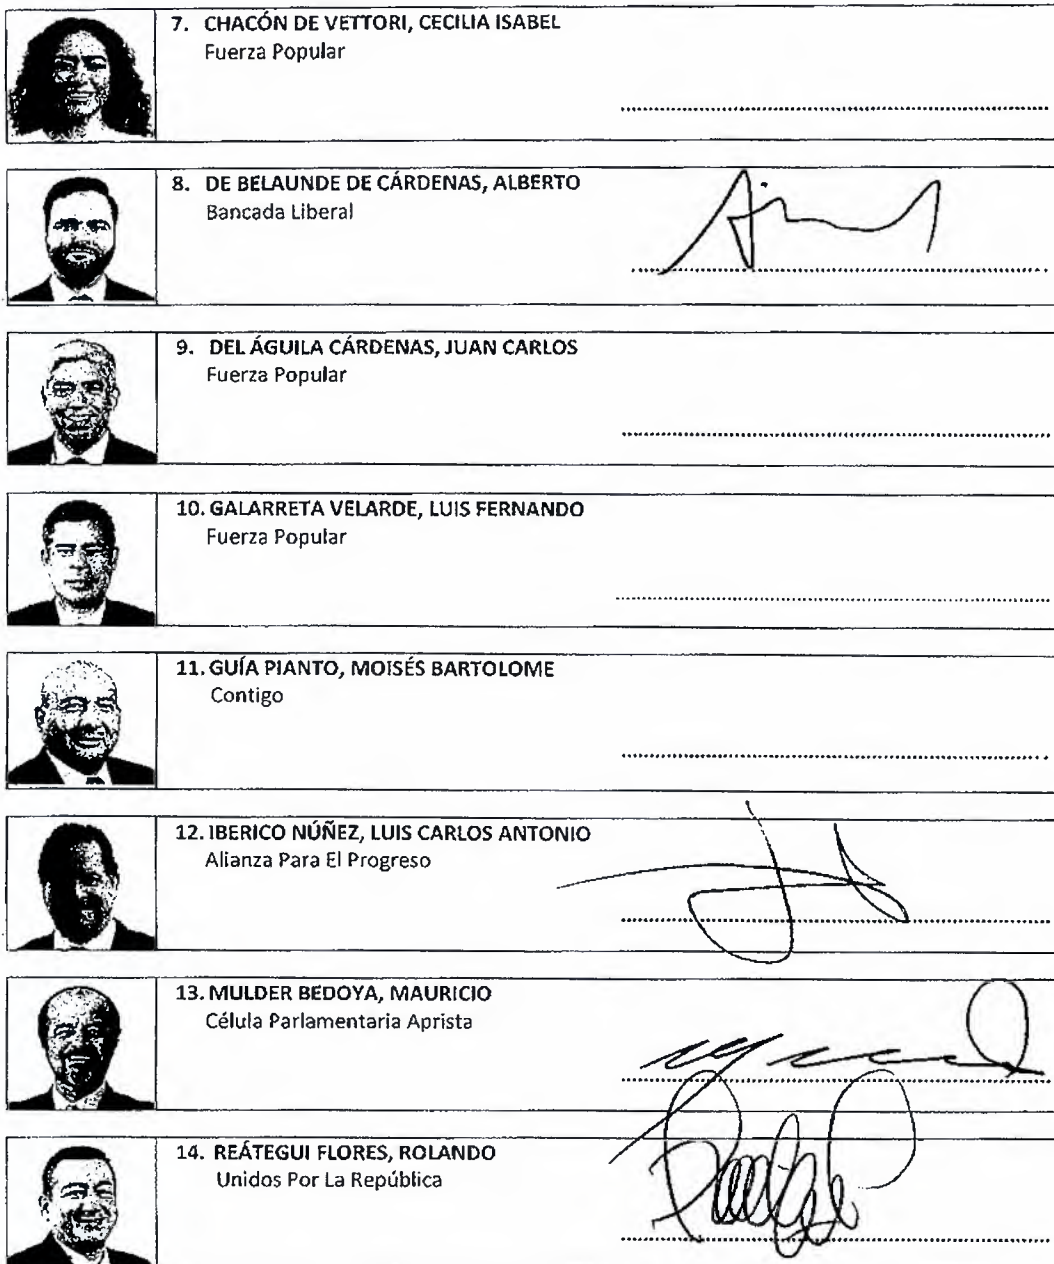 7. CHACÓN DE VETTORI, CECILIA ISABEL
Fuerza Popular
8. DE BELAUNDE DE CÁRDENAS, ALBERTO
Bancada Liberal
9. DEL ÁGUILA CÁRDENAS, JUAN CARLOS
Fuerza Popular
10. GALARRETA VELARDE, LUIS FERNANDO
Fuerza Popular
11. GUÍA PIANTO, MOISÉS BARTOLOME
Contigo
12. IBERICO NÚÑEZ, LUIS CARLOS ANTONIO
Alianza Para El Progreso
13. MULDER BEDOYA, MAURICIO
Célula Parlamentaria Aprista
14. REÁTEGUI FLORES, ROLANDO
Unidos Por La República